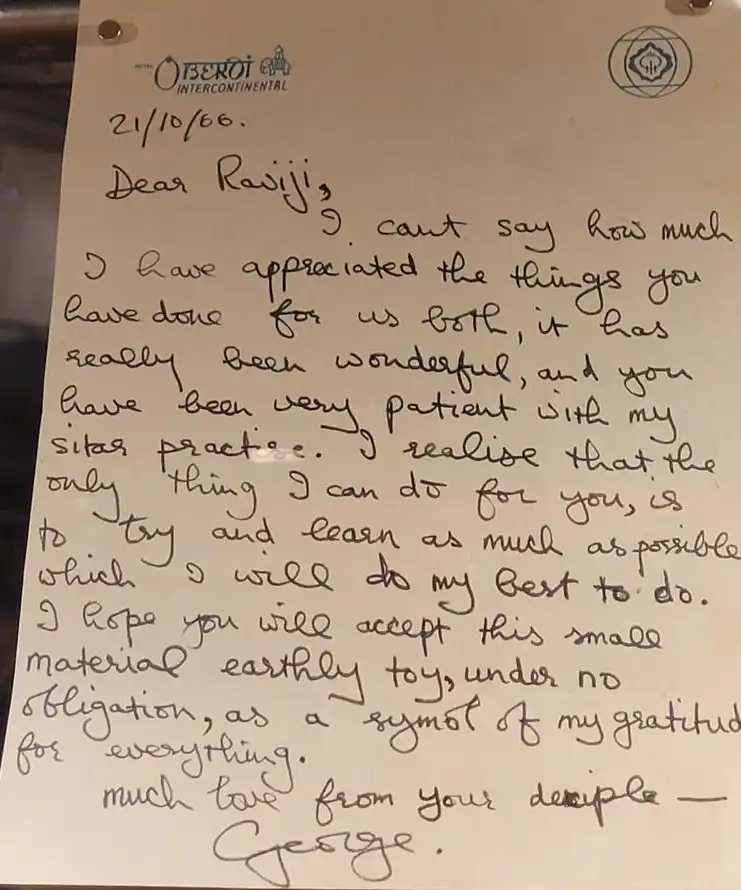 HOTEL OBEROI
INTERCONTINENTAL
21/10/66.
Dear Raviji,
I cant say how much
I have appreciated the things you
have done for us both, it has
really been wonderful, and you
have been very patient with my
sitar practise. I realise that the
only thing I can do for you, is
to try and learn as much as possible
which I will do my best to do.
I hope you will accept this small
material earthly toy, under no
obligation, as a symol of my gratitud
for everything.
much love from your deciple —
George.